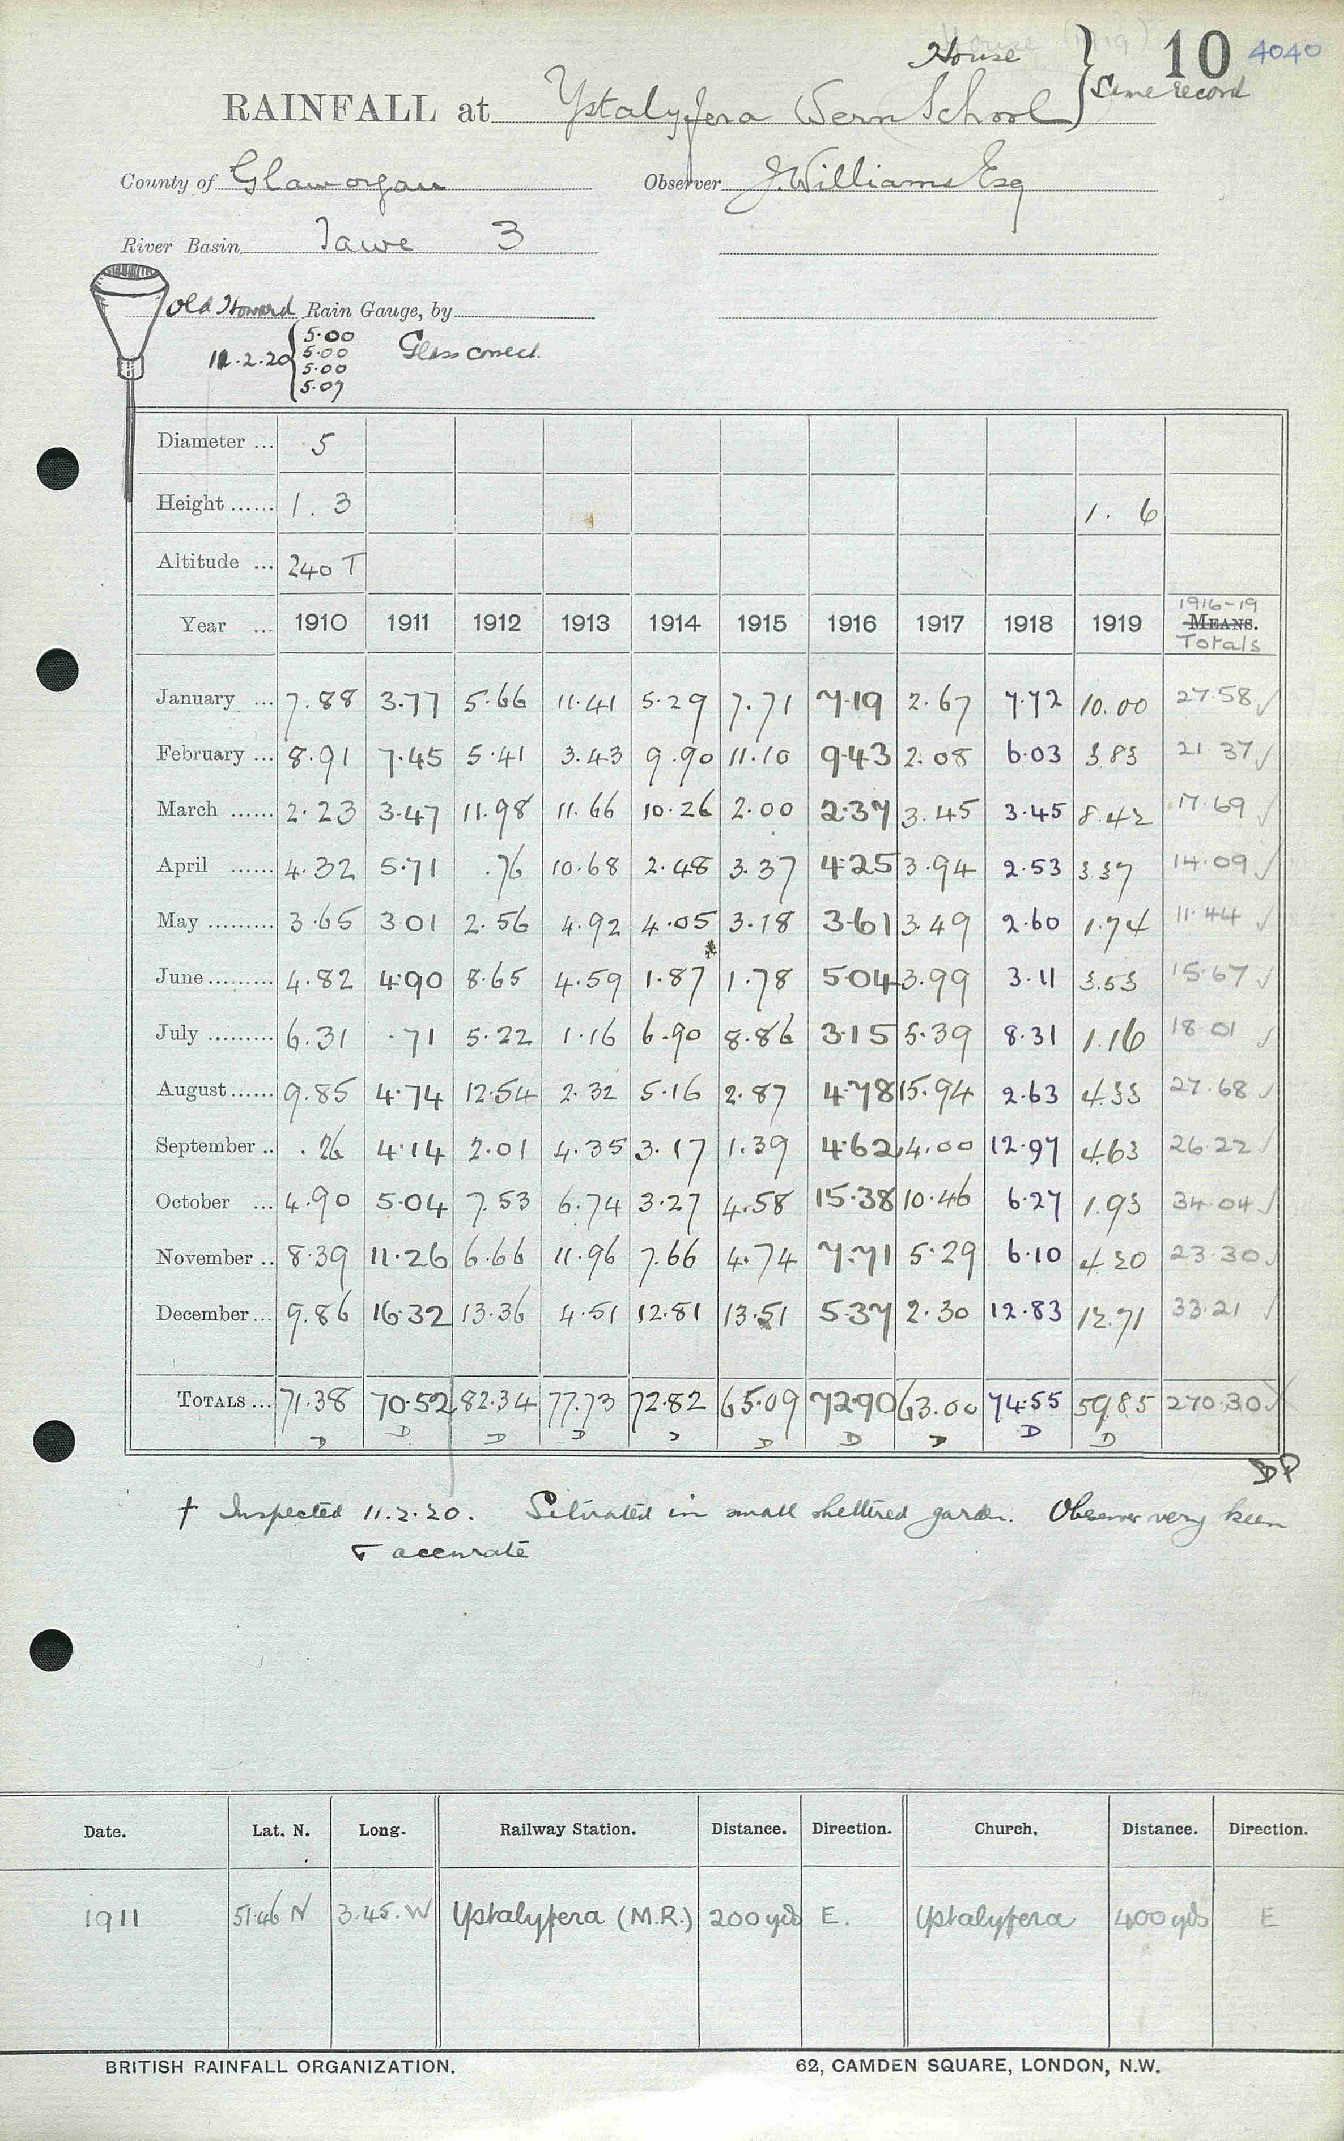 House } 10 4040
RAINFALL at Ystalyfera Wern School } Same record
County of Glamorgan Observer J. Williams Esq
River Basin Tawe 3
Old Howard Rain Gauge, by
11.2.20 { 5.00 Glass correct.
5.00
5.00
5.07
Diameter ... 5
Height ...... 1. 3 1. 6
Altitude ... 240 T
1916-19
Year ... 1910 1911 1912 1913 1914 1915 1916 1917 1918 1919 MEANS.
Totals
January ... 7.88 3.77 5.66 11.41 5.29 7.71 7.19 2.67 7.72 10.00 27.58 ✓
February ... 8.91 7.45 5.41 3.43 9.90 11.10 9.43 2.08 6.03 3.83 21 37 ✓
March ...... 2.23 3.47 11.98 11.66 10.26 2.00 2.37 3.45 3.45 8.42 17.69 ✓
April ...... 4.32 5.71 .76 10.68 2.48 3.37 4.25 3.94 2.53 3.37 14.09 ✓
May ......... 3.65 3.01 2.56 4.92 4.05 3.18 3.61 3.49 2.60 1.74 11.44 ✓
June ......... 4.82 4.90 8.65 4.59 1.87 * 1.78 5.04 3.99 3.11 3.53 15.67 ✓
July ......... 6.31 .71 5.22 1.16 6.90 8.86 3.15 5.39 8.31 1.16 18.01 ✓
August ...... 9.85 4.74 12.54 2.32 5.16 2.87 4.78 15.94 2.63 4.33 27.68 ✓
September .. .26 4.14 2.01 4.35 3.17 1.39 4.62 4.00 12.97 4.63 26.22 ✓
October ... 4.90 5.04 7.53 6.74 3.27 4.58 15.38 10.46 6.27 1.93 34.04 ✓
November .. 8.39 11.26 6.66 11.96 7.66 4.74 7.71 5.29 6.10 4.20 23.30 ✓
December ... 9.86 16.32 13.36 4.51 12.81 13.51 5.37 2.30 12.83 12.71 33.21 ✓
TOTALS ... 71.38 70.52 82.34 77.73 72.82 65.09 72.90 63.00 74.55 59.85 270.30
D D D D D D D D D D
DP
† Inspected 11.2.20. Situated in small sheltered garden. Observer very keen
& accurate
Date. Lat. N. Long. Railway Station. Distance. Direction. Church. Distance. Direction.
1911 51.46 N 3.45.W Ystalyfera (M.R.) 200 yds E. Ystalyfera 400 yds E
BRITISH RAINFALL ORGANIZATION. 62, CAMDEN SQUARE, LONDON, N.W.